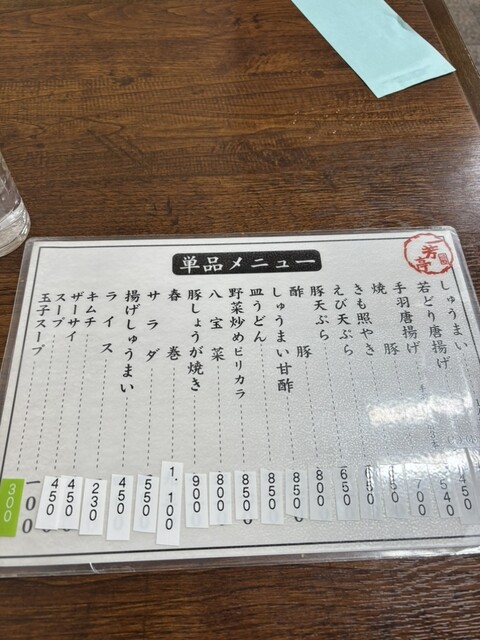 単品メニュー
芳亭
しゅうまい
若どり唐揚げ
手羽唐揚げ
焼豚
きも照やき
えび天ぷら
豚天ぷら
酢豚
しゅうまい甘酢
皿うどん
野菜炒めピリカラ
八宝菜
豚しょうが焼き
春巻
サラダ
揚げしゅうまい
ライス
キムチ
ザーサイ
スープ
玉子スープ
450
540
700
650
800
850
850
850
800
900
1,100
550
450
230
450
450
100
300